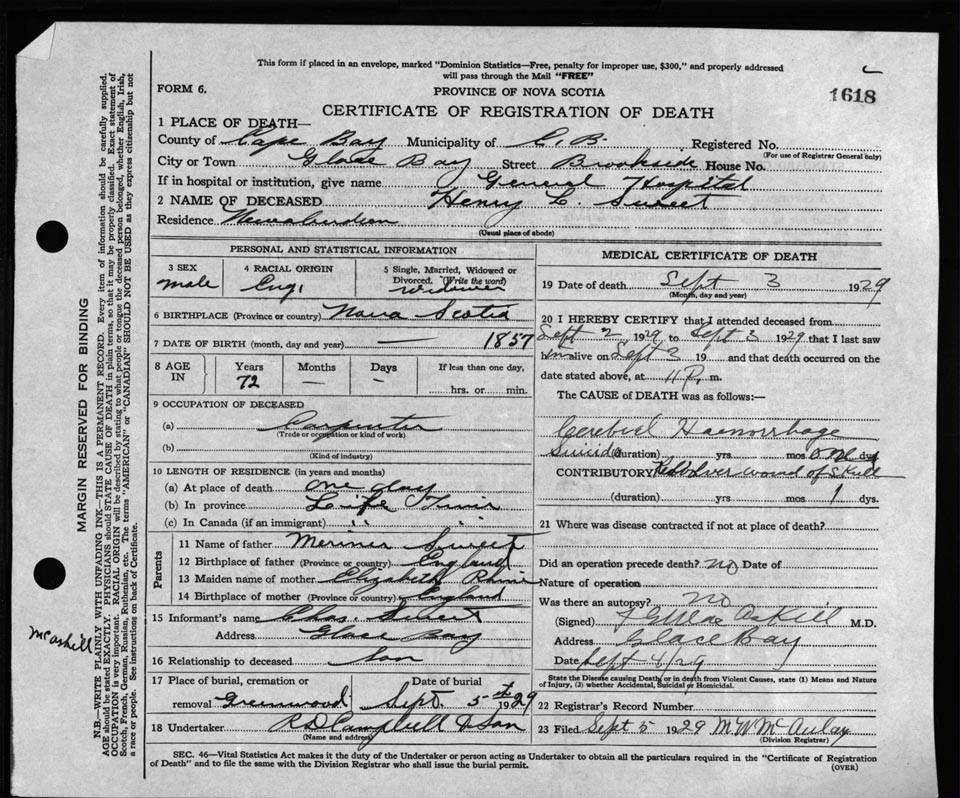 This form if placed in an envelope, marked "Dominion Statistics—Free, penalty for improper use, $300," and properly addressed
will pass through the Mail "FREE"
FORM 6.
PROVINCE OF NOVA SCOTIA
1618
CERTIFICATE OF REGISTRATION OF DEATH
1 PLACE OF DEATH—
County of Cape Bay Municipality of C, B. Registered No.
(For use of Registrar General only)
City or Town Glace Bay Street Brookside House No.
If in hospital or institution, give name General Hospital
2 NAME OF DECEASED Henry L. Sweet
Residence Newaberdeen
(Usual place of abode)
PERSONAL AND STATISTICAL INFORMATION
3 SEX 4 RACIAL ORIGIN 5 Single, Married, Widowed or
Divorced. (Write the word)
male Eng. Widower
6 BIRTHPLACE (Province or country) Nova Scotia
7 DATE OF BIRTH (month, day and year) — 1857
8 AGE IN Years Months Days If less than one day,
72 — — hrs. or min.
9 OCCUPATION OF DECEASED
(a) Carpenter
(Trade or occupation or kind of work)
(b)
(Kind of industry)
10 LENGTH OF RESIDENCE (in years and months)
(a) At place of death one day
(b) In province Life Time
(c) In Canada (if an immigrant) " "
Parents
11 Name of father Sweet
12 Birthplace of father (Province or country) England
13 Maiden name of mother Elizabeth
14 Birthplace of mother (Province or country) England
15 Informant's name Chas. Sweet
Address Glace Bay
16 Relationship to deceased Son
17 Place of burial, cremation or Date of burial
removal Greenwood Sept. 5th 1929
18 Undertaker R D Campbell & Son
(Name and address)
MEDICAL CERTIFICATE OF DEATH
19 Date of death Sept 3 1929
(Month, day and year)
20 I HEREBY CERTIFY that I attended deceased from
Sept 2, 1929 to Sept 3 1929 that I last saw
him alive on Sept 3 19 and that death occurred on
date stated above, at 11 P. m.
The CAUSE of DEATH was as follows:—
Cerebral Haemorrhage
Suicide (duration) yrs mos one dys
CONTRIBUTORY Revolver wound of Skull
(duration) yrs mos 1 dys.
21 Where was disease contracted if not at place of death?
Did an operation precede death? no Date of
Nature of operation
Was there an autopsy? no
(Signed) M.D.
Address Glace Bay
Date Sept 4/29
State the Disease causing Death, or in death from Violent Causes, state (1) Means and Nature
of Injury, (2) whether Accidental, Suicidal or Homicidal.
22 Registrar's Record Number
23 Filed Sept 5 1929 M W McAulay
(Division Registrar)
SEC. 46—Vital Statistics Act makes it the duty of the Undertaker or person acting as Undertaker to obtain all the particulars required in the "Certificate of Registration
of Death" and to file the same with the Division Registrar who shall issue the burial permit.
(OVER)
MARGIN RESERVED FOR BINDING
N.B.—WRITE PLAINLY WITH UNFADING INK—THIS IS A PERMANENT RECORD. Every item of information should be carefully supplied.
AGE should be stated EXACTLY. PHYSICIANS should STATE CAUSE OF DEATH in plain terms, so that it may be properly classified. Exact statement of
OCCUPATION is very important. RACIAL ORIGIN will be described by stating to what people or tongue the deceased person belonged, whether English, Irish,
Scotch, French, German, Russian, Ruthenian, etc. The terms "AMERICAN" or "CANADIAN" SHOULD NOT BE USED as they express citizenship but not
a race or people. See instructions on back of Certificate.
McAskill